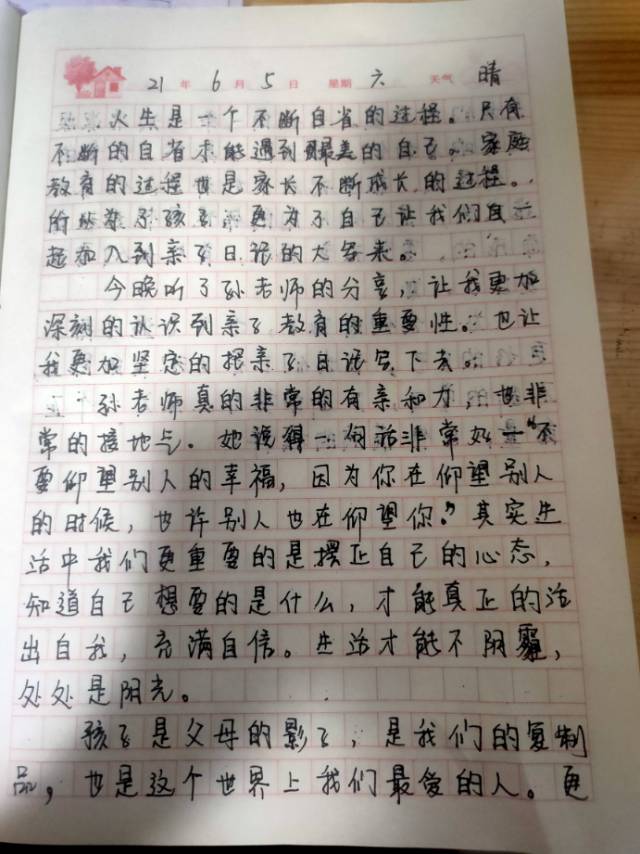 21年 6月 5日 星期 六 天气 晴
人生是一个不断自省的过程。只有
不断的自省才能遇到最美的自己。家庭
教育的过程也是家长不断成长的过程。
所以为了孩子,更为了自己让我们
起加入到亲子日记的大军来。
今晚听了孙老师的分享,让我更加
深刻的认识到亲子教育的重要性。也让
我更加坚定的把亲子日记写下去。
孙老师真的非常的有亲和力,也非
常的接地气。她说得一句话非常好"不
要仰望别人的幸福,因为你在仰望别人
的时候,也许别人也在仰望你。"其实生
活中我们更重要的是摆正自己的心态,
知道自己想要的是什么,才能真正的活
出自我,充满自信。生活才能不阴霾,
处处是阳光。
孩子是父母的影子,是我们的复制
品,也是这个世界上我们最爱的人。更